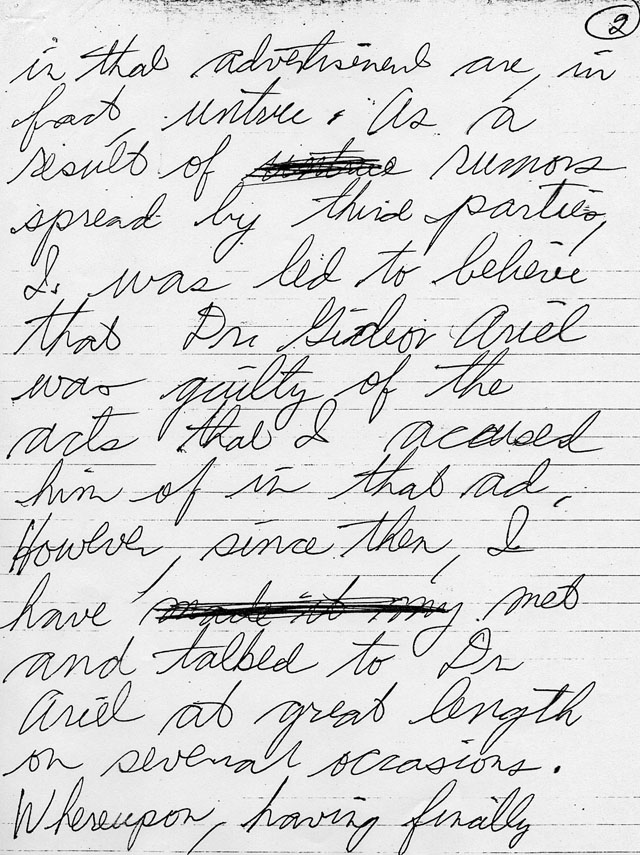 2
in that advertisement are, in
fact, untrue. As a
result of rumors
spread by third parties,
I was led to believe
that Dr. Gideon Ariel
was guilty of the
acts that I accused
him of in that ad.
However, since then, I
have made it my met
and talked to Dr
Ariel at great length
on several occasions.
Whereupon, having finally